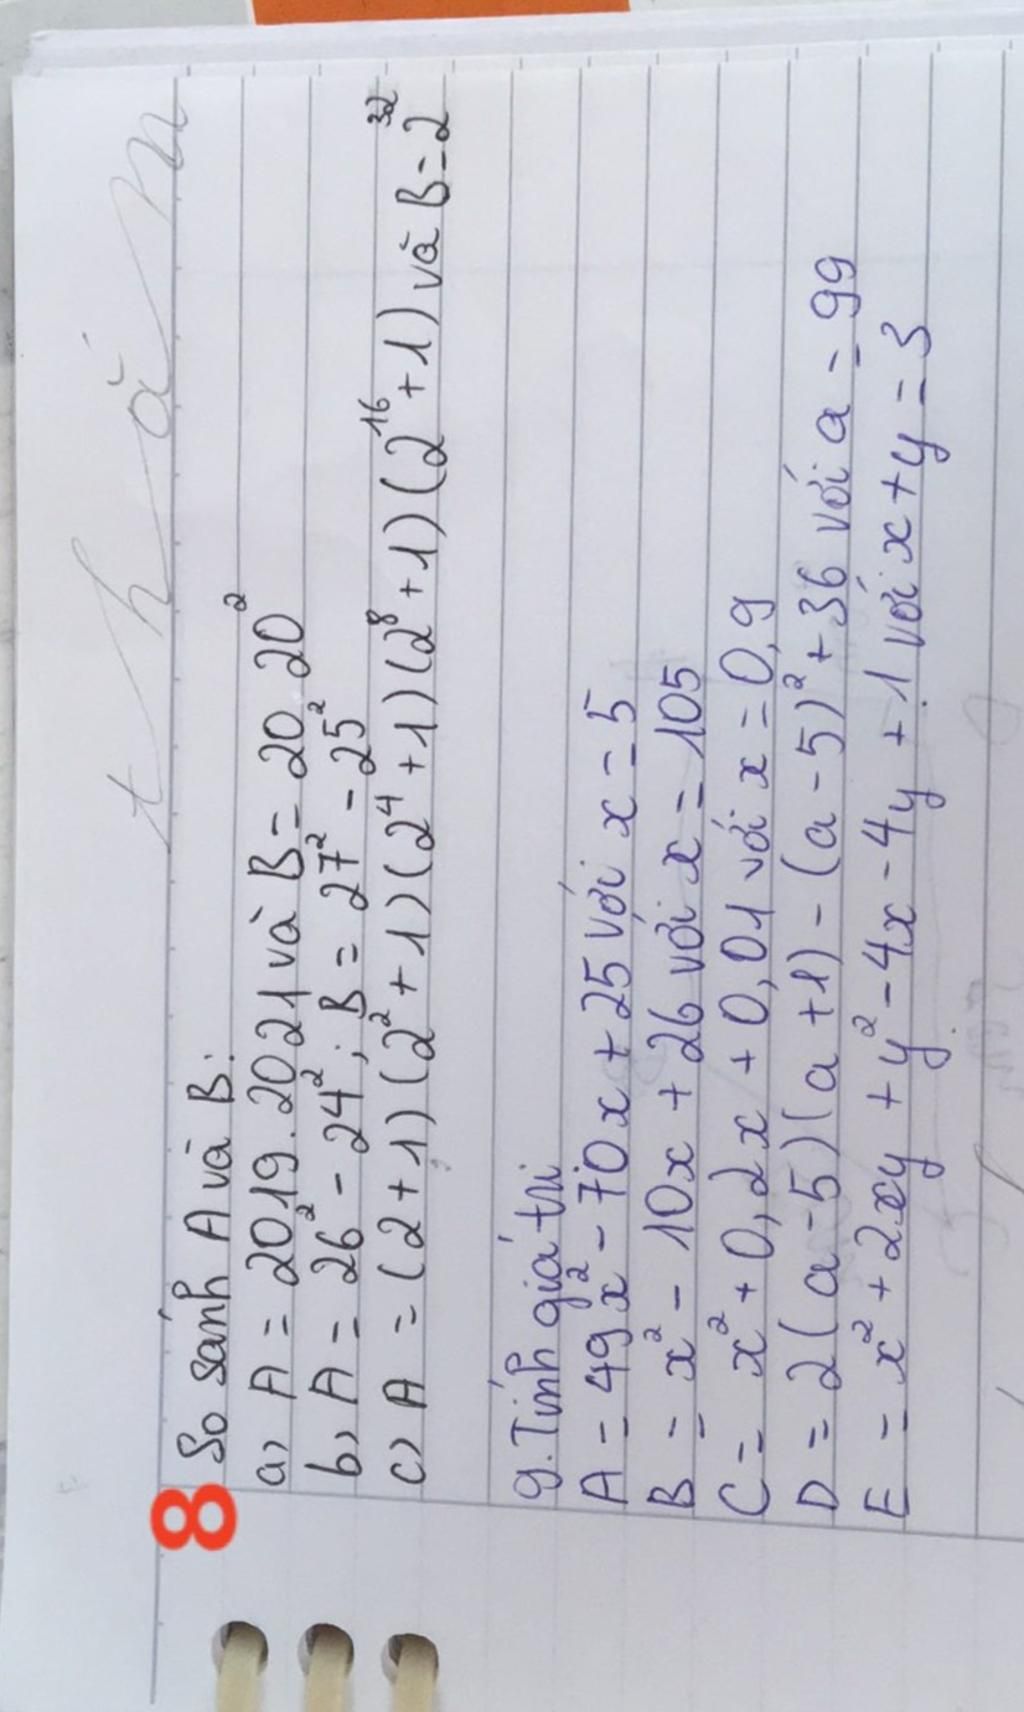 t h ả m
8 So sánh A và B:
a) A = 2019.2021 và B = 2020²
b) A = 26² - 24²; B = 27² - 25²
c) A = (2+1)(2²+1)(2⁴+1)(2⁸+1)(2¹⁶+1) và B = 2³²
9. Tính giá trị
A = 49x² - 70x + 25 với x = 5
B = x² - 10x + 26 với x = 105
C = x² + 0,2x + 0,01 với x = 0,9
D = 2(a-5)(a+1) - (a-5)² + 36 với a = 99
E = x² + 2xy + y² - 4x - 4y + 1 với x + y = 3